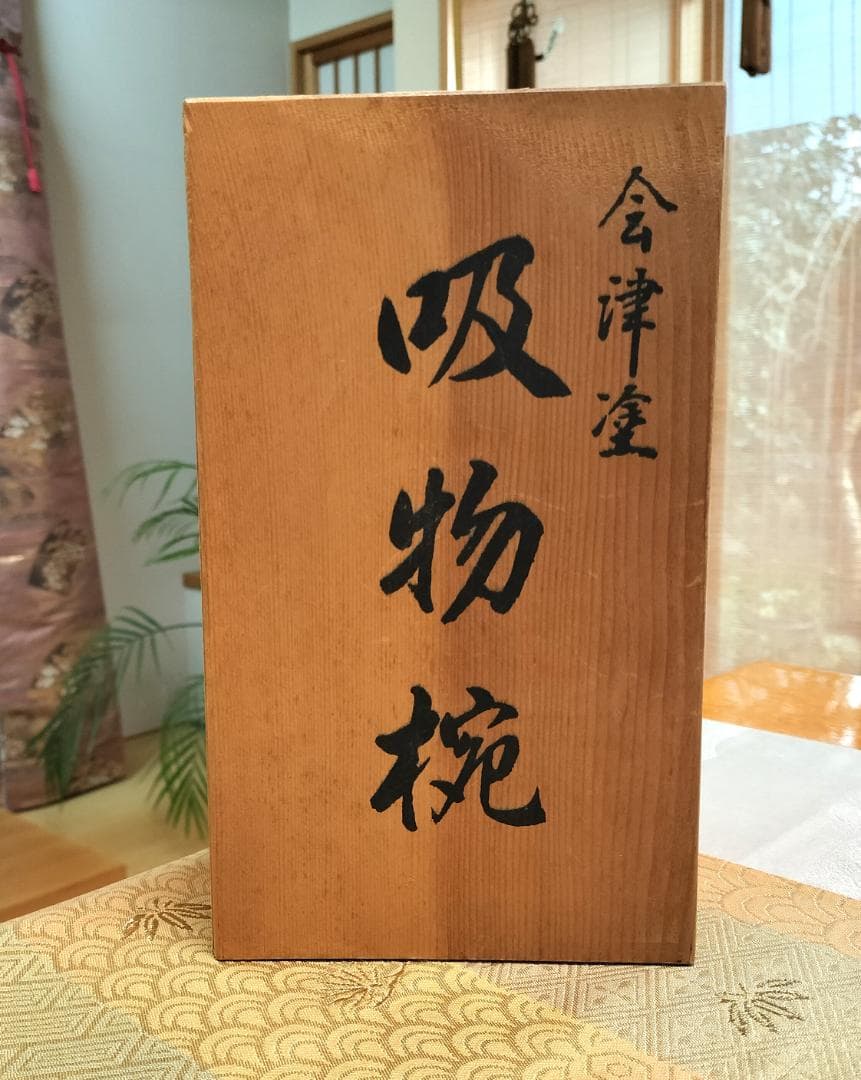 会津塗
吸物椀